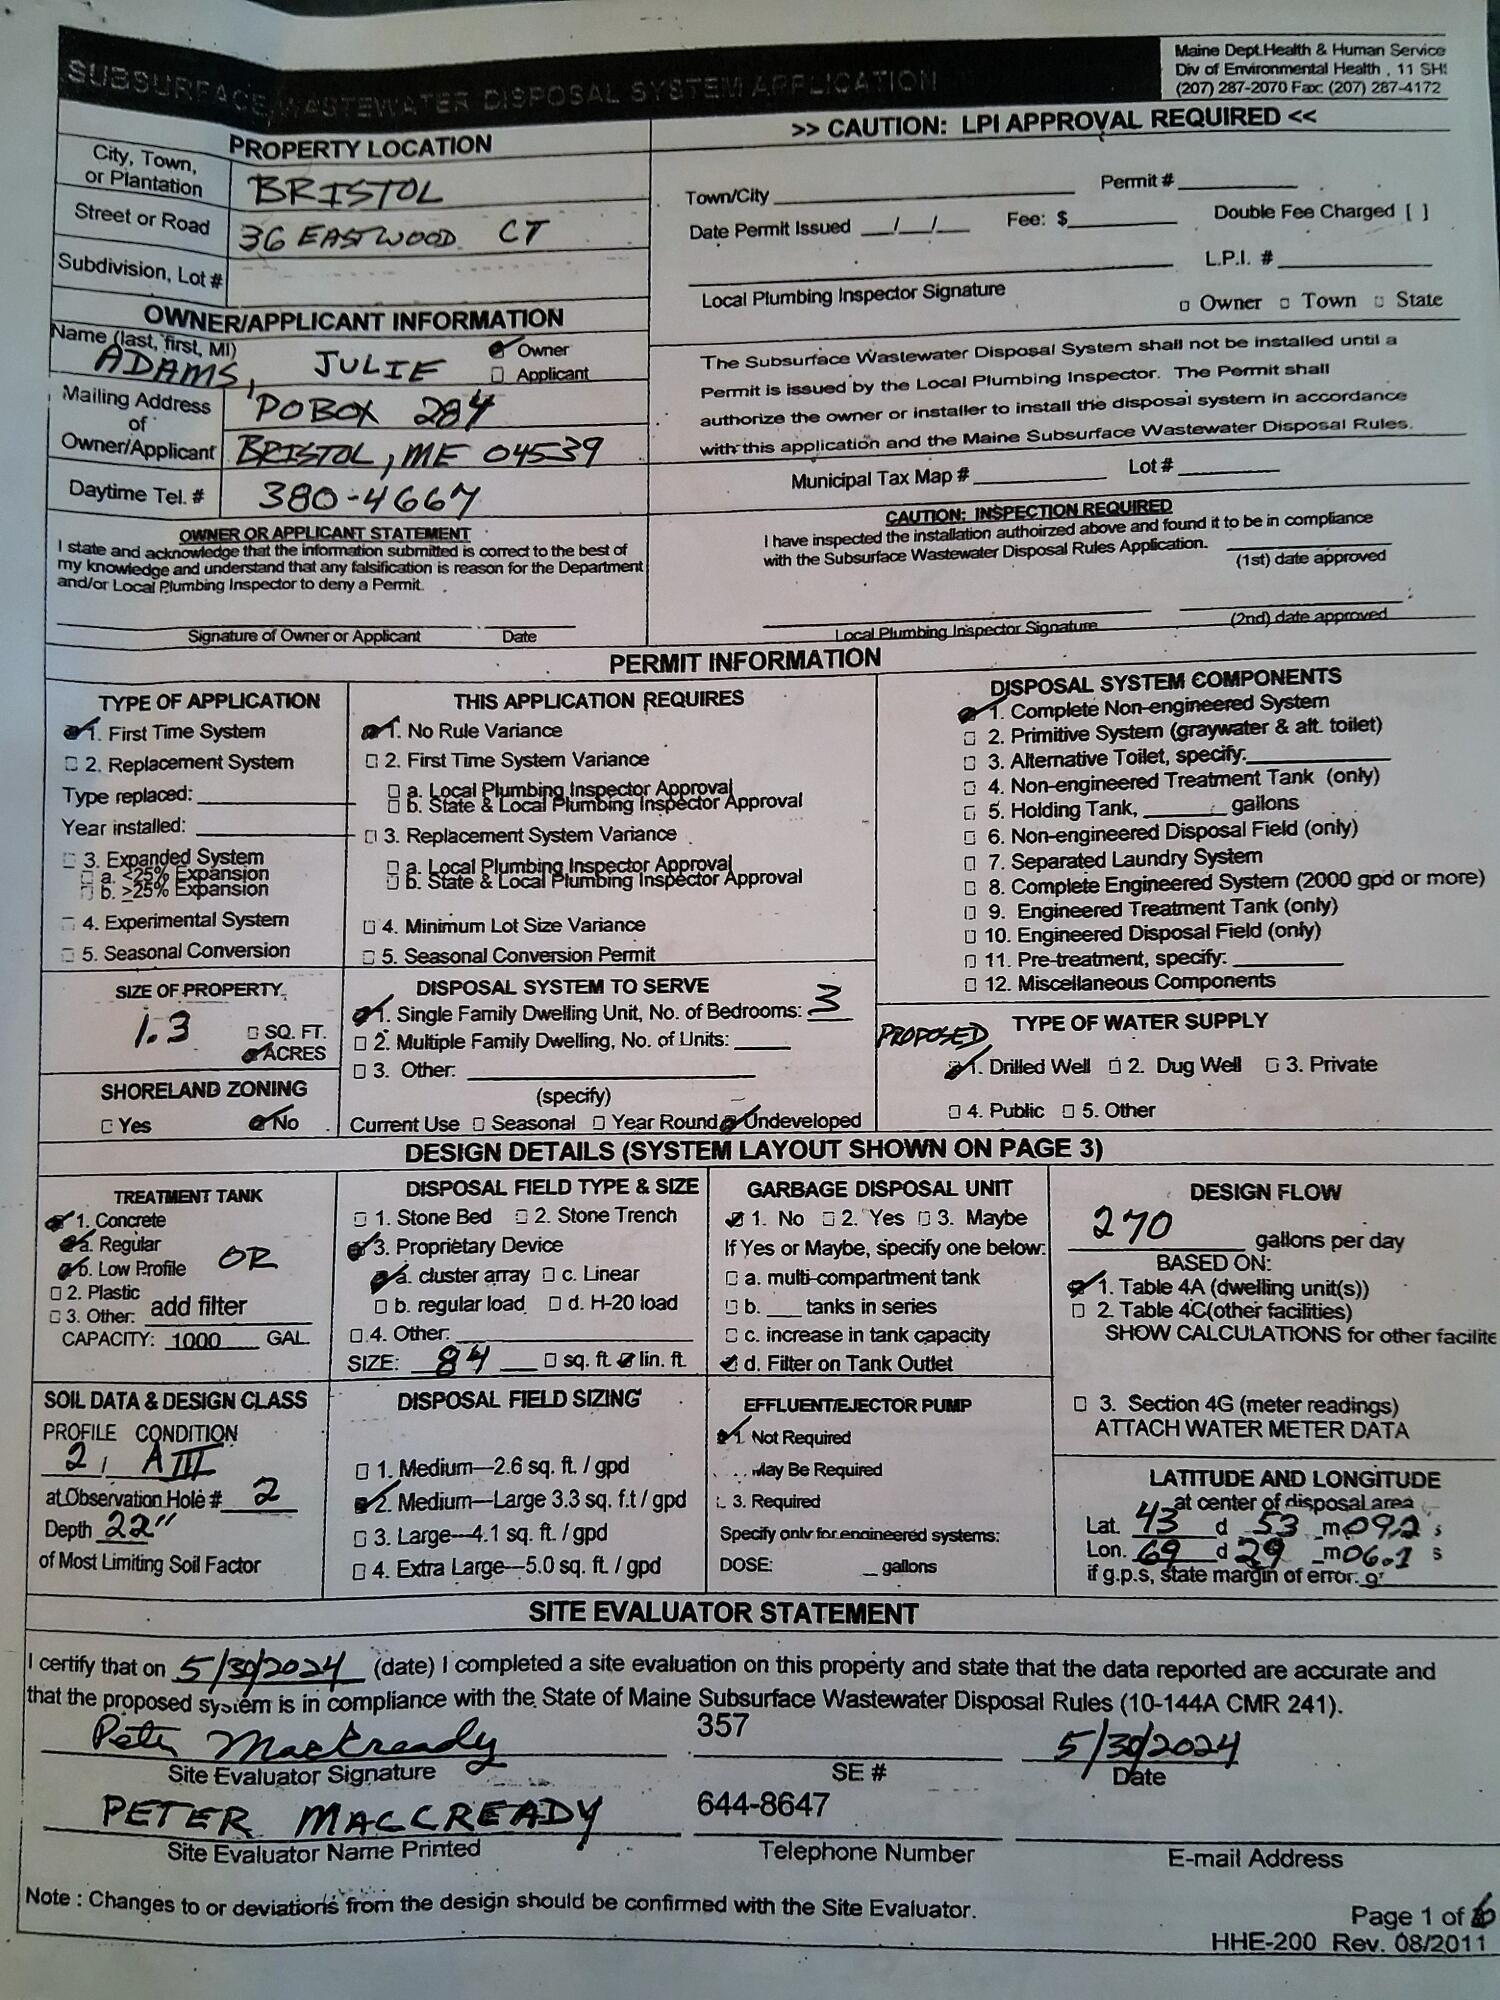 SUBSURFACE WASTEWATER DISPOSAL SYSTEM APPLICATION
Maine Dept.Health & Human Service
Div of Environmental Health , 11 SHS
(207) 287-2070 Fax: (207) 287-4172
PROPERTY LOCATION
City, Town,
or Plantation
BRISTOL
Street or Road
36 EASTWOOD CT
Subdivision, Lot #
OWNER/APPLICANT INFORMATION
Name (last, first, MI)
ADAMS, JULIE
Owner
Applicant
Mailing Address
of
Owner/Applicant
PO BOX 284
BRISTOL, ME 04539
Daytime Tel. #
380-4667
OWNER OR APPLICANT STATEMENT
I state and acknowledge that the information submitted is correct to the best of
my knowledge and understand that any falsification is reason for the Department
and/or Local Plumbing Inspector to deny a Permit.
Signature of Owner or Applicant Date
>> CAUTION: LPI APPROVAL REQUIRED <<
Town/City Permit #
Date Permit Issued / / Fee: $ Double Fee Charged [ ]
L.P.I. #
Local Plumbing Inspector Signature
Owner Town State
The Subsurface Wastewater Disposal System shall not be installed until a
Permit is issued by the Local Plumbing Inspector. The Permit shall
authorize the owner or installer to install the disposal system in accordance
with this application and the Maine Subsurface Wastewater Disposal Rules.
Municipal Tax Map # Lot #
CAUTION: INSPECTION REQUIRED
I have inspected the installation authoirzed above and found it to be in compliance
with the Subsurface Wastewater Disposal Rules Application.
(1st) date approved
Local Plumbing Inspector Signature (2nd) date approved
PERMIT INFORMATION
TYPE OF APPLICATION
1. First Time System
2. Replacement System
Type replaced:
Year installed:
3. Expanded System
a. <25% Expansion
b. >25% Expansion
4. Experimental System
5. Seasonal Conversion
THIS APPLICATION REQUIRES
1. No Rule Variance
2. First Time System Variance
a. Local Plumbing Inspector Approval
b. State & Local Plumbing Inspector Approval
3. Replacement System Variance
a. Local Plumbing Inspector Approval
b. State & Local Plumbing Inspector Approval
4. Minimum Lot Size Variance
5. Seasonal Conversion Permit
DISPOSAL SYSTEM COMPONENTS
1. Complete Non-engineered System
2. Primitive System (graywater & alt. toilet)
3. Alternative Toilet, specify:
4. Non-engineered Treatment Tank (only)
5. Holding Tank, gallons
6. Non-engineered Disposal Field (only)
7. Separated Laundry System
8. Complete Engineered System (2000 gpd or more)
9. Engineered Treatment Tank (only)
10. Engineered Disposal Field (only)
11. Pre-treatment, specify:
12. Miscellaneous Components
SIZE OF PROPERTY
1.3
SQ. FT.
ACRES
SHORELAND ZONING
Yes No
DISPOSAL SYSTEM TO SERVE
1. Single Family Dwelling Unit, No. of Bedrooms: 3
2. Multiple Family Dwelling, No. of Units:
3. Other:
(specify)
Current Use Seasonal Year Round Undeveloped
PROPOSED
TYPE OF WATER SUPPLY
1. Drilled Well 2. Dug Well 3. Private
4. Public 5. Other
DESIGN DETAILS (SYSTEM LAYOUT SHOWN ON PAGE 3)
TREATMENT TANK
1. Concrete
a. Regular
OR
b. Low Profile
2. Plastic
3. Other: add filter
CAPACITY: 1000 GAL.
DISPOSAL FIELD TYPE & SIZE
1. Stone Bed 2. Stone Trench
3. Proprietary Device
a. cluster array c. Linear
b. regular load d. H-20 load
4. Other:
SIZE: 84 sq. ft. lin. ft.
GARBAGE DISPOSAL UNIT
1. No 2. Yes 3. Maybe
If Yes or Maybe, specify one below:
a. multi-compartment tank
b. tanks in series
c. increase in tank capacity
d. Filter on Tank Outlet
DESIGN FLOW
270 gallons per day
BASED ON:
1. Table 4A (dwelling unit(s))
2. Table 4C(other facilities)
SHOW CALCULATIONS for other facilite
3. Section 4G (meter readings)
ATTACH WATER METER DATA
SOIL DATA & DESIGN CLASS
PROFILE CONDITION
2 / A III
at Observation Hole # 2
Depth 22"
of Most Limiting Soil Factor
DISPOSAL FIELD SIZING
1. Medium—2.6 sq. ft. / gpd
2. Medium—Large 3.3 sq. f.t / gpd
3. Large—4.1 sq. ft. / gpd
4. Extra Large—5.0 sq. ft. / gpd
EFFLUENT/EJECTOR PUMP
1. Not Required
May Be Required
3. Required
Specify only for engineered systems:
DOSE: gallons
LATITUDE AND LONGITUDE
at center of disposal area
Lat. 43 d 53 m 09.2 s
Lon. 69 d 29 m 06.1 s
if g.p.s, state margin of error: 9'
SITE EVALUATOR STATEMENT
I certify that on 5/30/2024 (date) I completed a site evaluation on this property and state that the data reported are accurate and
that the proposed system is in compliance with the State of Maine Subsurface Wastewater Disposal Rules (10-144A CMR 241).
Peter MacCready 357 5/30/2024
Site Evaluator Signature SE # Date
PETER MACCREADY 644-8647
Site Evaluator Name Printed Telephone Number E-mail Address
Note : Changes to or deviations from the design should be confirmed with the Site Evaluator.
Page 1 of 6
HHE-200 Rev. 08/2011